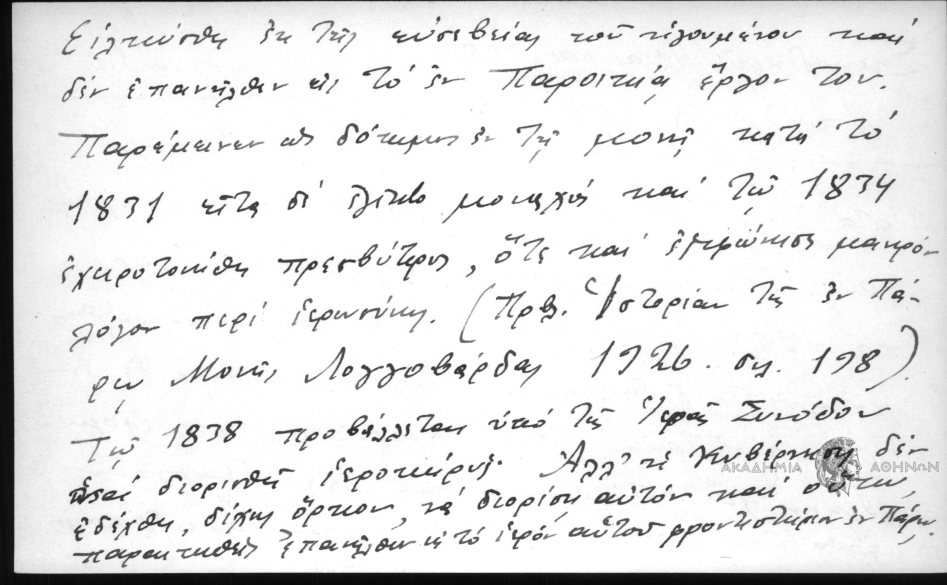 Εἱλκύσθη ἐκ τῆς εὐσεβείας τοῦ ἡγουμένου καί
δέν ἐπανῆλθεν εἰς τό ἐν Παροικίᾳ ἔργον του.
Παρέμεινεν ὡς δόκιμος ἐν τῇ μονῇ κατά τό
1831 εἶτα δέ μοναχός καί τῷ 1834
ἐχειροτονήθη πρεσβύτερος, ὅτε καί ἐξεφώνησε μακρόν
λόγον περί ἱερωσύνης. (Πρβλ. Ἱστορίαν τῆς ἐν Πά-
ρῳ Μονῆς Λογγοβάρδας 1926. σελ. 198).
Τῷ 1838 προβάλλεται ὑπό τῆς Ἱερᾶς Συνόδου
διορισθῇ ἱεροκήρυξ. Ἀλλ' ἡ Κυβέρνησις δέν
ἐδέχθη, δίχως ὅρκον, νά διορίσῃ αὐτόν καί οὕτω,
παραιτηθείς ἐπανῆλθεν εἰς τό ἱερόν αὐτοῦ φροντιστήριον ἐν Πάρῳ,
ΑΚΑΔΗΜΙΑ ΑΘΗΝΩΝ